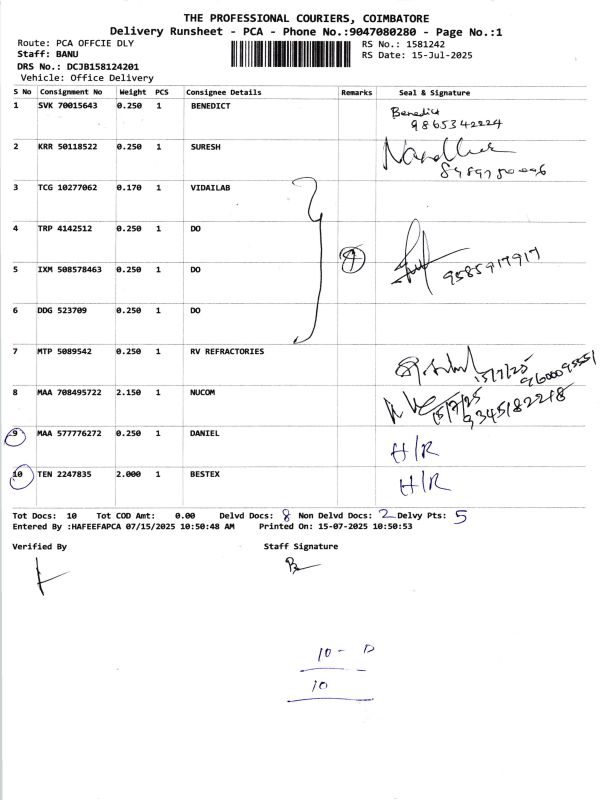 THE PROFESSIONAL COURIERS, COIMBATORE
Delivery Runsheet - PCA - Phone No.:9047080280 - Page No.:1
Route: PCA OFFCIE DLY RS No.: 1581242
Staff: BANU RS Date: 15-Jul-2025
DRS No.: DCJB158124201
Vehicle: Office Delivery
S No Consignment No Weight PCS Consignee Details Remarks Seal & Signature
1 SVK 70015643 0.250 1 BENEDICT Benedict
9865342224
2 KRR 50118522 0.250 1 SURESH
3 TCG 10277062 0.170 1 VIDAILAB
4 TRP 4142512 0.250 1 DO
5 IXM 508578463 0.250 1 DO 9585917917
6 DDG 523709 0.250 1 DO
7 MTP 5089542 0.250 1 RV REFRACTORIES
15/7/25
8 MAA 708495722 2.150 1 NUCOM 15/7/25
9345182218
9 MAA 577776272 0.250 1 DANIEL H/R
10 TEN 2247835 2.000 1 BESTEX H/R
Tot Docs: 10 Tot COD Amt: 0.00 Delvd Docs: 8 Non Delvd Docs: 2 Delvy Pts: 5
Entered By :HAFEEFAPCA 07/15/2025 10:50:48 AM Printed On: 15-07-2025 10:50:53
Verified By Staff Signature
10 - D
10